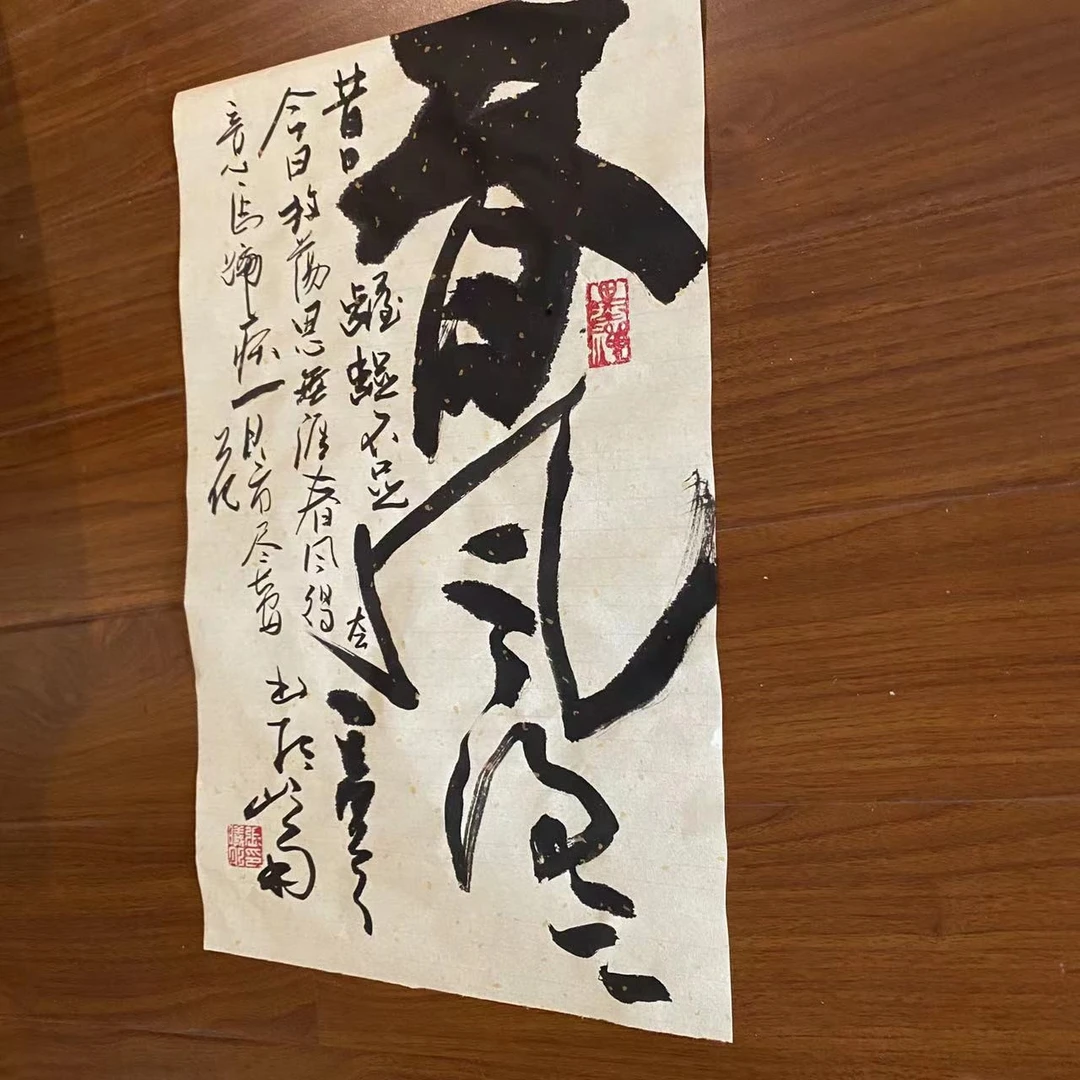 春风得意
昔日龌龊不足夸
今日放荡思無涯春风得
意马蹄疾一日看尽长安
花
书於岭南